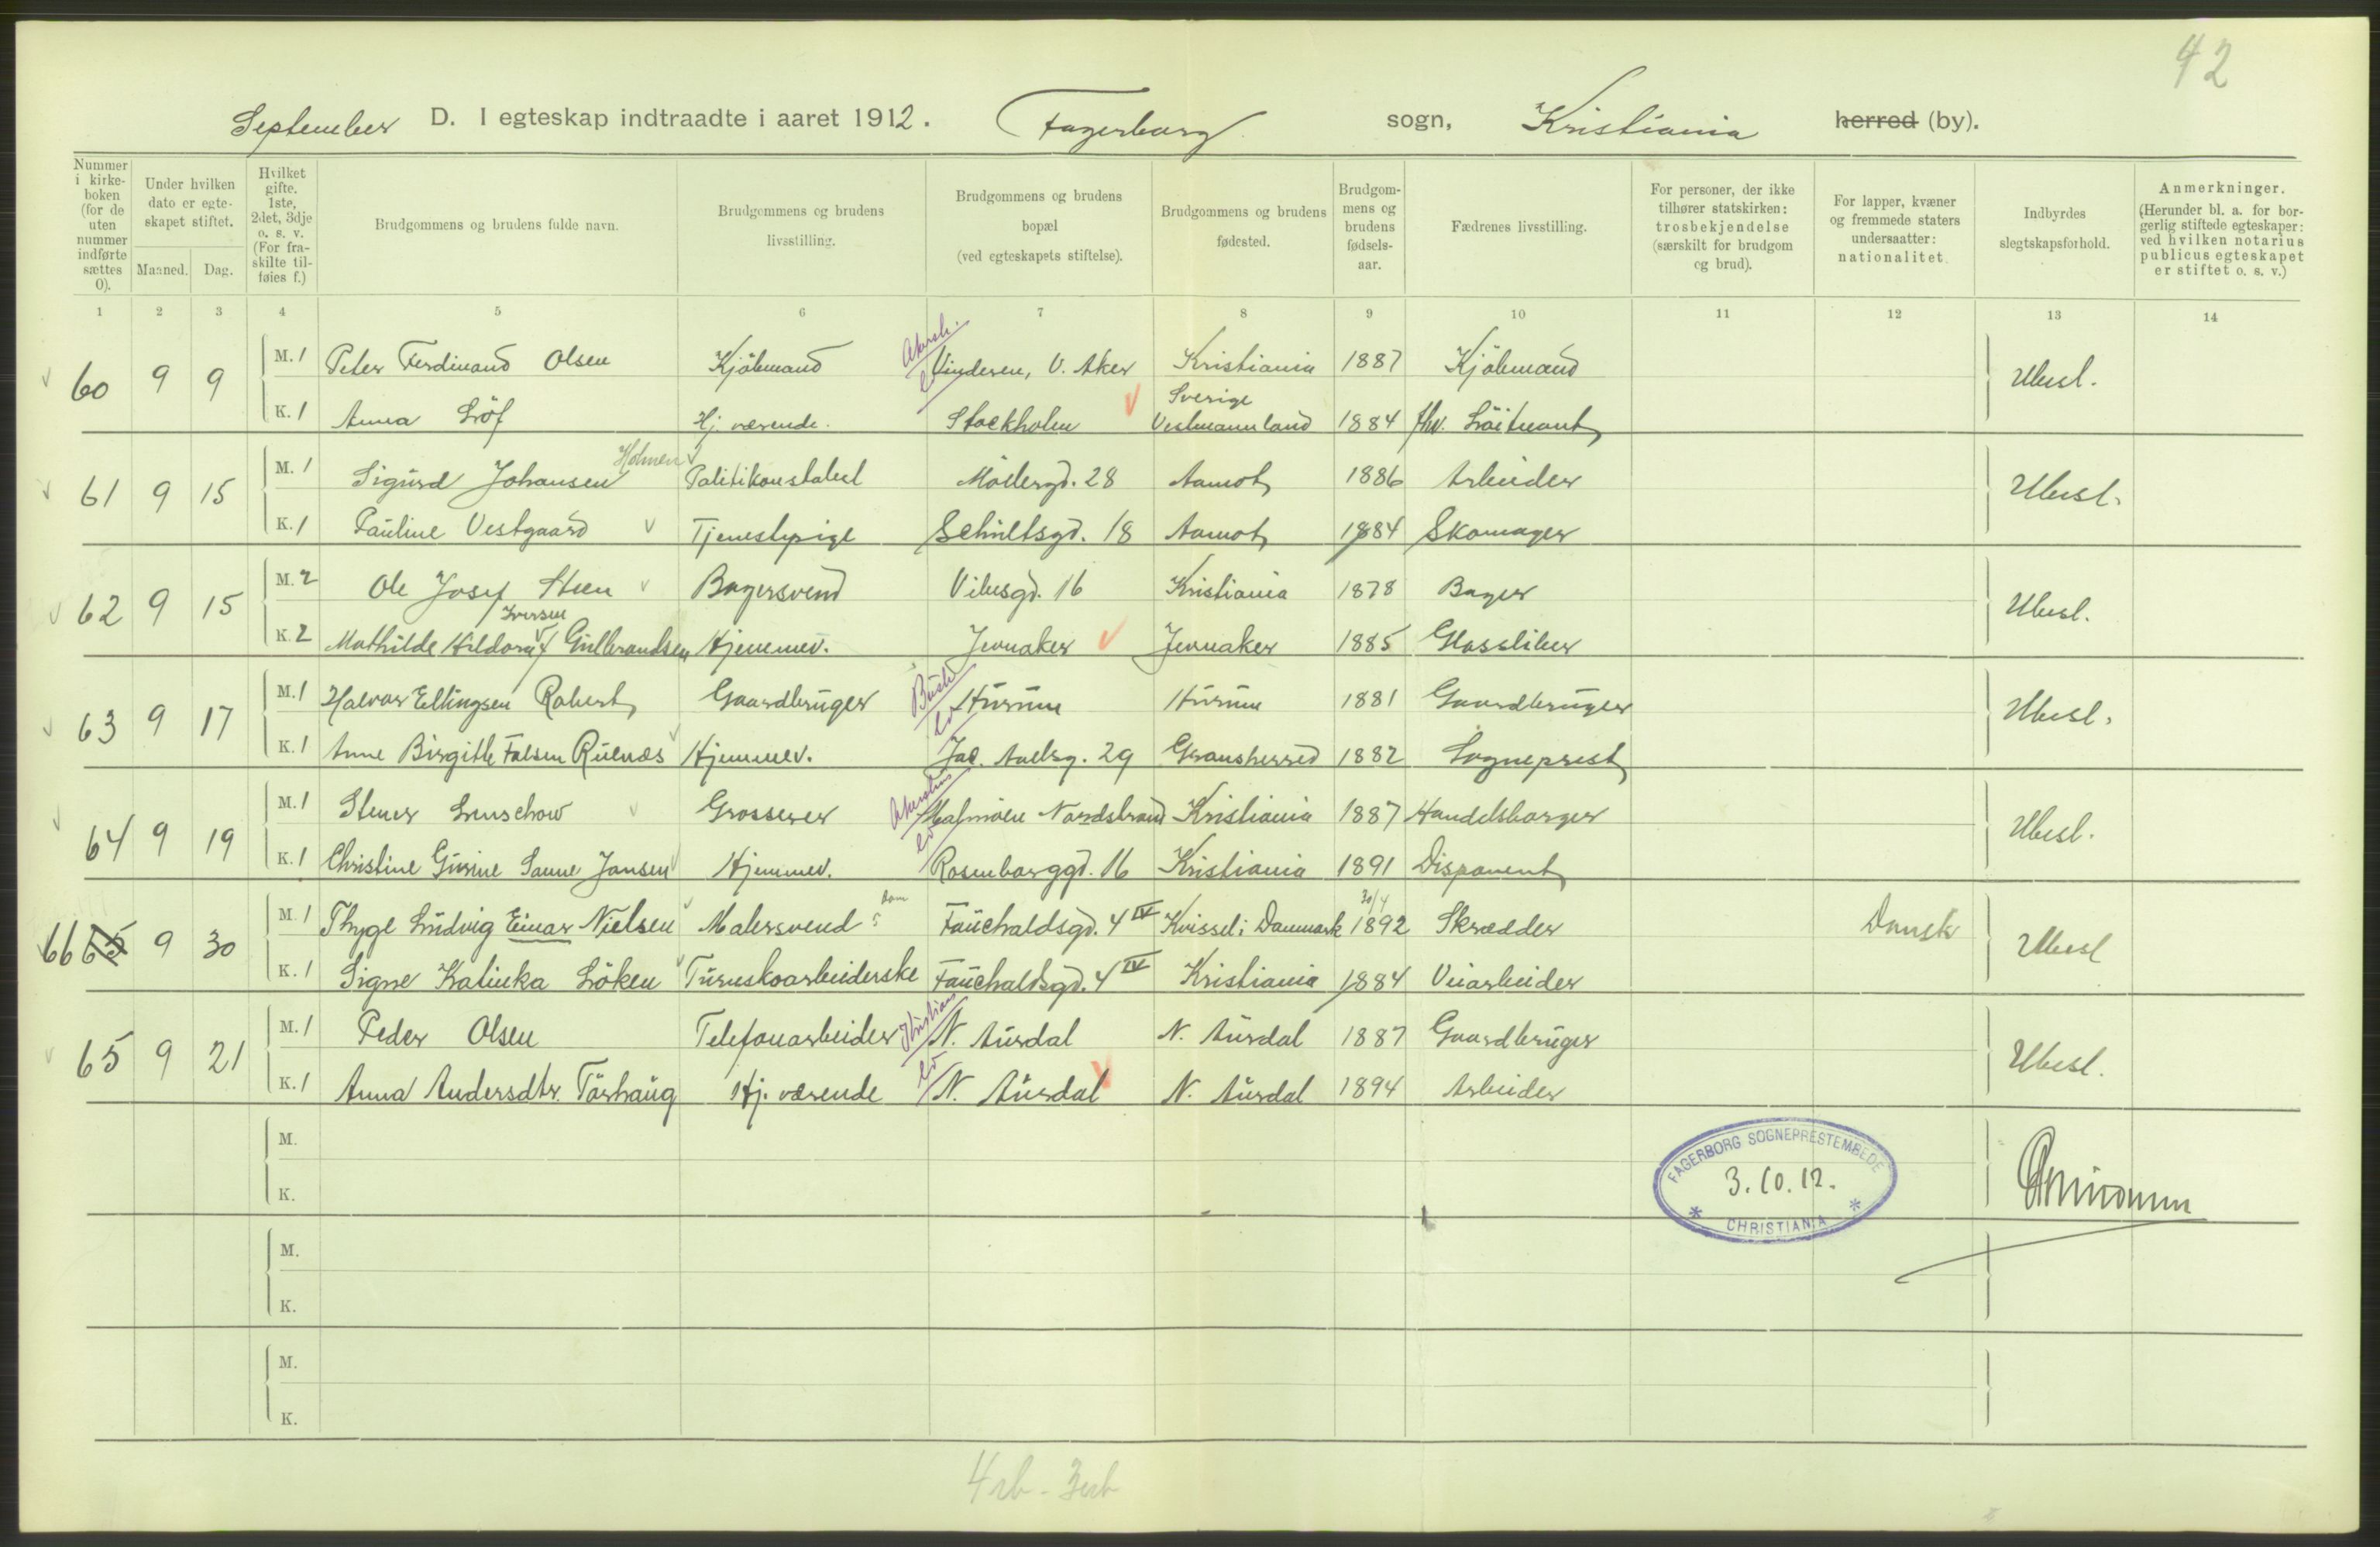 42
September D. I egteskap indtraadte i aaret 1912. Fagerborg sogn, Kristiania herred (by).
Nummer i kirkeboken (for de uten nummer indførte sættes 0).
Under hvilken dato er egteskapet stiftet.
Maaned. Dag.
Hvilket gifte. 1ste, 2det, 3dje o. s. v. (For fraskilte tilføies f.)
Brudgommens og brudens fulde navn.
Brudgommens og brudens livsstilling.
Brudgommens og brudens bopæl (ved egteskapets stiftelse).
Brudgommens og brudens fødested.
Brudgommens og brudens fødselsaar.
Fædrenes livsstilling.
For personer, der ikke tilhører statskirken: trosbekjendelse (særskilt for brudgom og brud).
For lapper, kvæner og fremmede staters undersaatter: nationalitet.
Indbyrdes slegtskapsforhold.
Anmerkninger. (Herunder bl. a. for borgerlig stiftede egteskaper: ved hvilken notarius publicus egteskapet er stiftet o. s. v.)
1 2 3 4 5 6 7 8 9 10 11 12 13 14
Akersh.
60 9 9 M. 1 Peter Ferdinand Olsen Kjöbmand Vinderen, V. Aker Kristiania 1887 Kjöbmand Ubesl.
Sverige
K. 1 Anna Löf Hj. værende. Stockholm Vestmannland 1884 fhv. Löitnant
Holmen
61 9 15 M. 1 Sigurd Johansen Politikonstabel Möllergd. 28 Aamot 1886 Arbeider Ubesl.
K. 1 Pauline Vestgaard Tjenestepige Schultsgd. 18 Aamot 1884 Skomager
62 9 15 M. 2 Ole Josef Steen Bagersvend Vibesgd. 16 Kristiania 1878 Bager Ubesl.
Iversen
K. 2 Mathilde Hildora Gulbrandsen Hjemmev. Jevnaker Jevnaker 1885 Glassliber
Busk
63 9 17 M. 1 Halvor Ellingsen Gaardbruger Hurum Hurum 1881 Gaardbruger Ubesl.
K. 1 Anne Birgitte Falsen Jac. Aallsg. 29 Hjemmev. Gransherred 1882 Sogneprest
Akershus
64 9 19 M. 1 Stener Lenschow Grosserer Malmöen Nordstrand Kristiania 1887 Handelsborger Ubesl.
K. 1 Christine Gurine Sanne Jansen Hjemmev. Rosenborggd. 16 Kristiania 1891 Disponent
30/4
66 65 9 30 M. 1 Thyge Ludvig Einar Nielsen Malersvend Fauchaldsgd. 4 IV Kvissel i Danmark 1892 Skrædder Dansk Ubesl
K. 1 Signe Kalinka Löken Turnskoarbeiderske Fauchaldsgd. 4 IV Kristiania 1884 Veiarbeider
Kristians
65 9 21 M. 1 Peder Olsen Telefonarbeider N. Aurdal N. Aurdal 1887 Gaardbruger Ubesl.
K. 1 Anna Andersdtr. Törhaug Hj. værende N. Aurdal N. Aurdal 1894 Arbeider
M.
K.
FAGERBORG SOGNEPRESTEMBEDE
3.10.12.
* CHRISTIANIA *
M.
K.
M.
K.